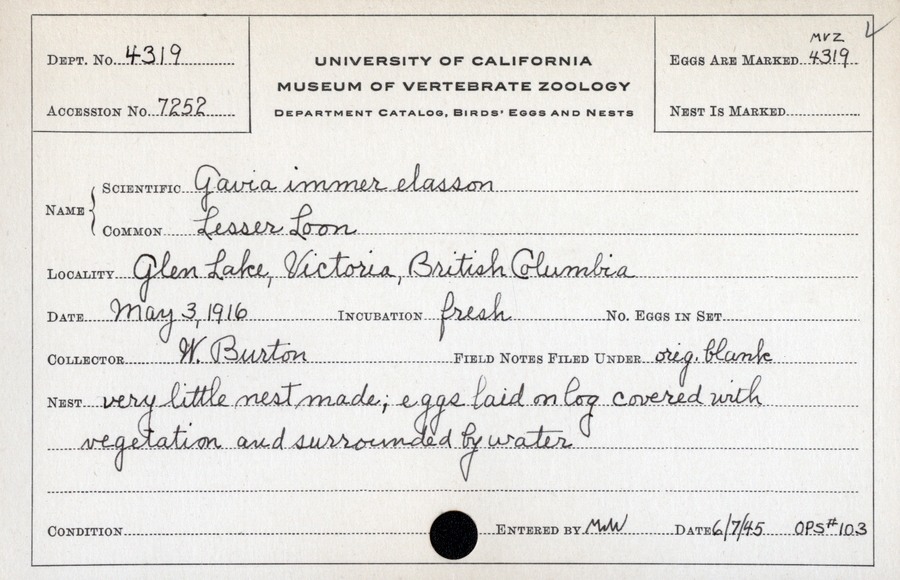 DEPT. No. 4319
ACCESSION No. 7252
UNIVERSITY OF CALIFORNIA
MUSEUM OF VERTEBRATE ZOOLOGY
DEPARTMENT CATALOG, BIRDS' EGGS AND NESTS
MVZ
EGGS ARE MARKED 4319
NEST IS MARKED
NAME
SCIENTIFIC Gavia immer elasson
COMMON Lesser Loon
LOCALITY Glen Lake, Victoria, British Columbia
DATE May 3, 1916 INCUBATION fresh NO. EGGS IN SET
COLLECTOR W. Burton FIELD NOTES FILED UNDER orig. blank
NEST very little nest made; eggs laid on log covered with
vegetation and surrounded by water
CONDITION ENTERED BY MWW DATE 6/7/45 OPS# 103